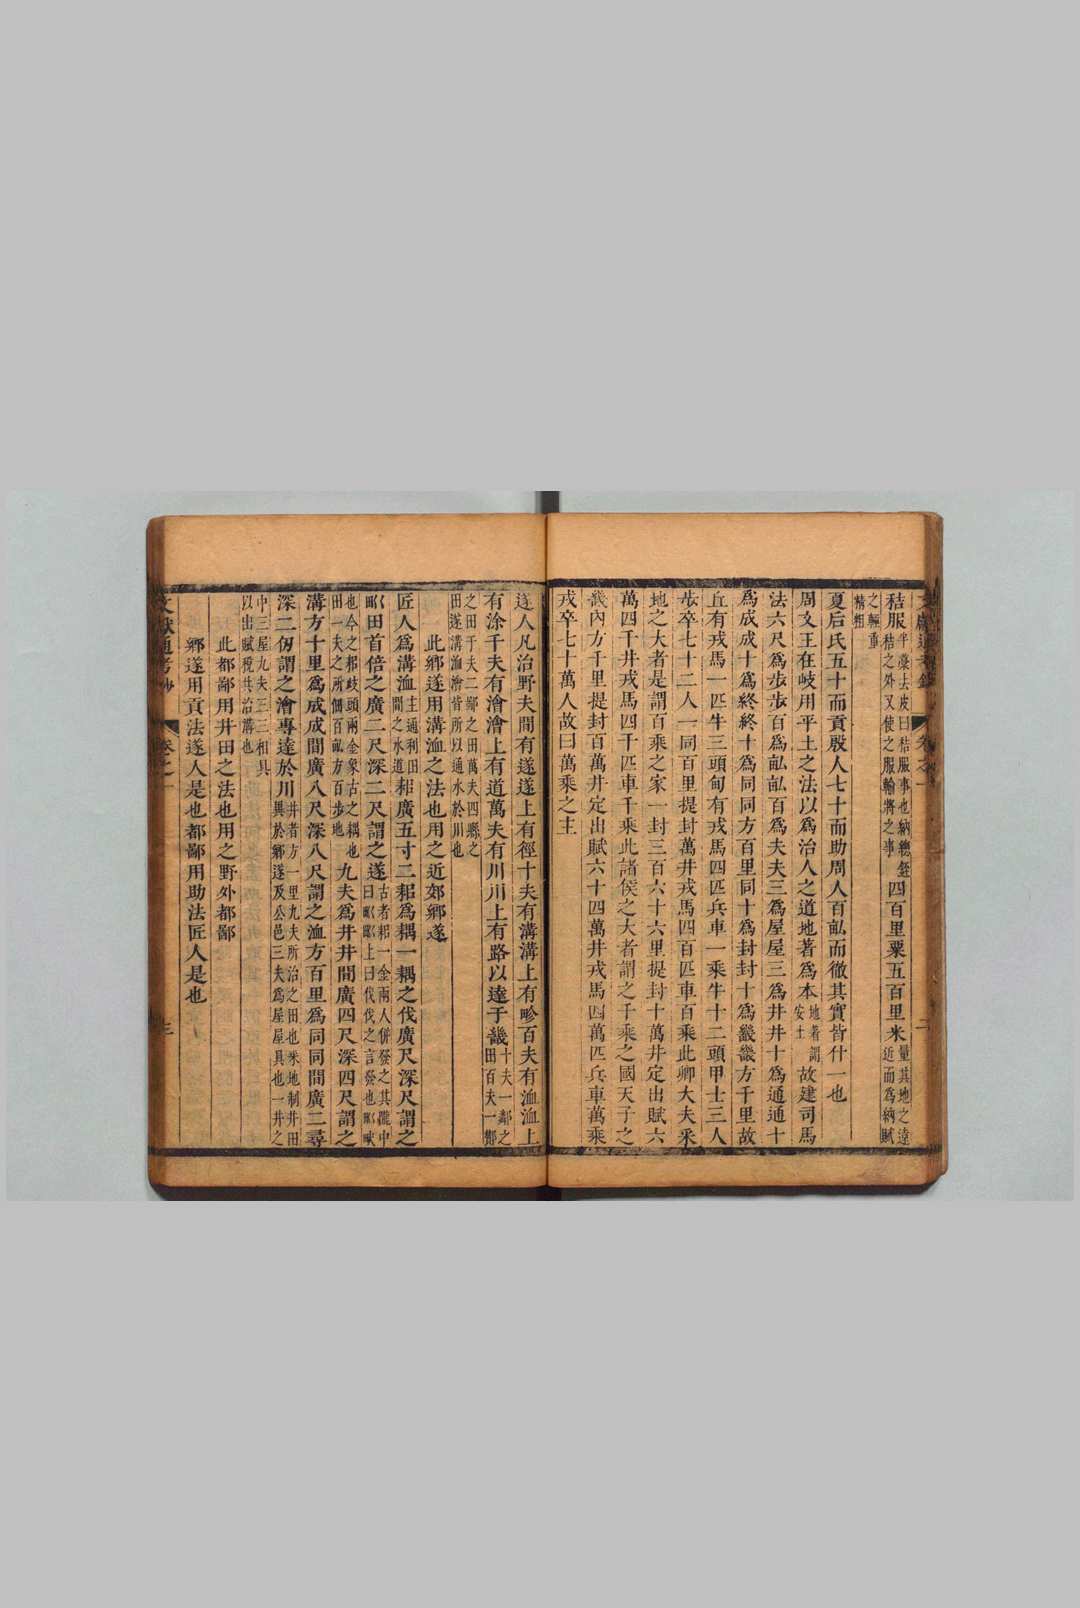 文獻通考鈔 卷之一 二
秸服半藁去皮曰秸服事也納總銍
秸之外又使之服輸將之事四百里粟五百里米量其地之遠
近而爲納賦
之輕重
精粗
夏后氏五十而貢殷人七十而助周人百畝而徹其實皆什一也
周文王在岐用平土之法以爲治人之道地著爲本地著謂
安土故建司馬
法六尺爲步步百爲畝畝百爲夫夫三爲屋屋三爲井井十爲通通十
爲成成十爲終終十爲同同方百里同十爲封封十爲畿畿方千里故
丘有戎馬一匹牛三頭甸有戎馬四匹兵車一乘牛十二頭甲士三人
步卒七十二人一同百里提封萬井戎馬四百匹車百乘此卿大夫采
地之大者是謂百乘之家一封三百六十六里提封十萬井定出賦六
萬四千井戎馬四千匹車千乘此諸侯之大者謂之千乘之國天子之
畿內方千里提封百萬井定出賦六十四萬井戎馬四萬匹兵車萬乘
戎卒七十萬人故曰萬乘之主
遂人凡治野夫間有遂遂上有徑十夫有溝溝上有畛百夫有洫洫上
有涂千夫有澮澮上有道萬夫有川川上有路以達于畿十夫一鄰之
田百夫一酇
之田千夫二鄙之田萬夫四縣之
田遂溝洫澮皆所以通水於川也
此鄉遂用溝洫之法也用之近郊鄉遂
匠人爲溝洫主通利田
間之水道耜廣五寸二耜爲耦一耦之伐廣尺深尺謂之
𤰝田首倍之廣二尺深二尺謂之遂古者耜一金兩人併發之其壟中
曰𤰝𤰝上曰伐伐之言發也𤰝畎
也今之耜歧頭兩金象古之耦也
田一夫之所佃百畝方百步地九夫爲井井間廣四尺深四尺謂之
溝方十里爲成成間廣八尺深八尺謂之洫方百里爲同同間廣二尋
深二仞謂之澮專達於川井者方一里九夫所治之田也采地制井田
異於鄉遂及公邑三夫爲屋屋具也一井之
中三屋九夫三三相具
以出賦稅共治溝也
此都鄙用井田之法也用之野外都鄙
鄉遂用貢法遂人是也都鄙用助法匠人是也
文獻通考鈔 卷之一 三